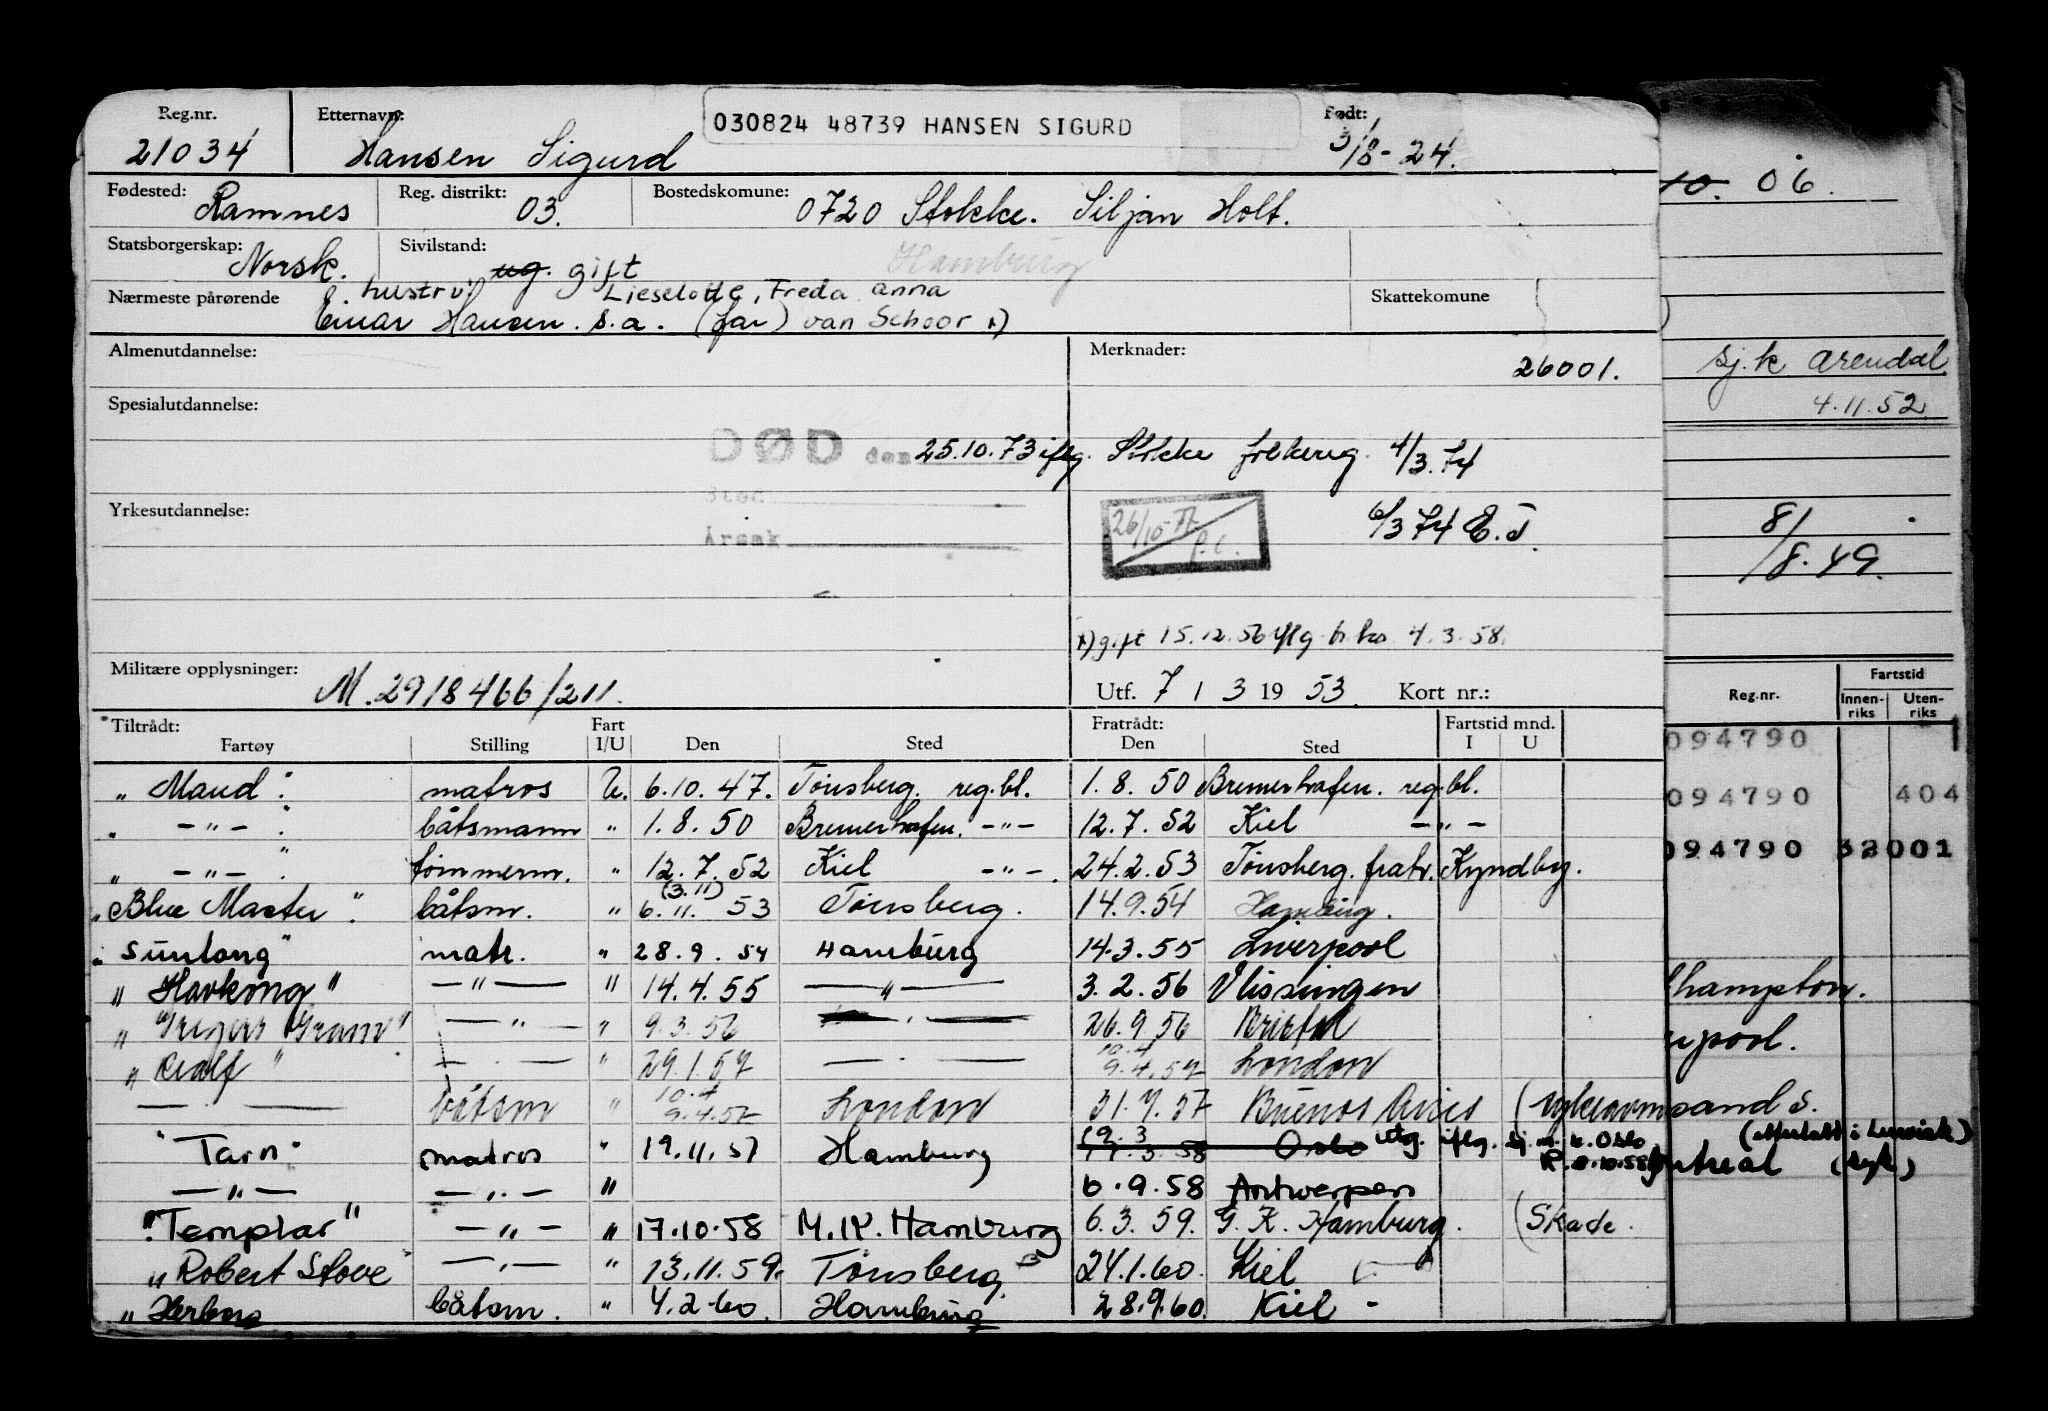 Reg.nr. Etternavn: 030824 48739 HANSEN SIGURD Født:
21034 Hansen Sigurd 3/8-24.
Fødested: Ramnes Reg. distrikt: 03. Bostedskomune: 0720 Stokke. Siljan Holt.
Statsborgerskap: Norsk. Sivilstand: ug. gift Hamburg
hustru Lieselotte, Freda anna
Nærmeste pårørende Einar Hansen. s.a. (far) van Schoor x) Skattekomune
Almenutdannelse: Merknader: 26001.
Spesialutdannelse:
DØD den 25.10.73 iflg. Stokke folkereg. 4/3.74
Sted
Yrkesutdannelse: 6/3 74 E.J.
Årsak
x) gift 15.12.56 iflg. 4.3.58.
Militære opplysninger: M.2918466/211. Utf. 7 / 3 19 53. Kort nr.:
Tiltrådt: Fart Fratrådt: Fartstid mnd.
Fartøy Stilling I/U Den Sted Den Sted I U
" Maud". matros U. 6.10.47. Tönsberg. reg.bl. 1.8.50 Bremerhafen. reg.bl.
" -"- ". båtsmann " 1.8.50 Bremerhafen. -"- 12.7.52 Kiel -"-
" -"- ". tömmerm. " 12.7.52 Kiel -"-. 24.2.53 Tönsberg. fratr. Kyndby.
(3.11)
" Blue Master". båtsm. " 6.11.53 Tönsberg. 14.9.54 Hamburg.
" Suntang" matr. " 28.9.54 Hamburg 14.3.55 Liverpool
" Havkong" -"- " 14.4.55 -"- 3.2.56 Vlissingen
" Gregers Gram" -"- " 9.3.56 -"- 26.9.56 Bristol
10.4
" Ralf " - " - " 29.1.57 - " - 9.4.57 London
10.4
- " - båtsm " 9.4.57 London 31.7.57 Buenos Aires
19.3
" Tarn" matros " 19.11.57 Hamburg 17.3.58 Oslo utg. iflg. sj. m. k. Oslo
-"- -"- " 6.9.58 Antwerpen
"Templar" -"- " 17.10.58 M.K. Hamburg 6.3.59. G.K. Hamburg. (Skade.
" Robert Stove" -"- " 13.11.59. Tönsberg 24.1.60. Kiel
" båtsm. " 4.2.60. Hamburg 28.9.60. Kiel -
10. 06.
sj.k. Arendal
4.11.52.
8/8.49.
Fartstid
Reg.nr. Innen-riks Uten-riks
094790 1
094790 404
094790 32001
hampton.
pool.
sand s.